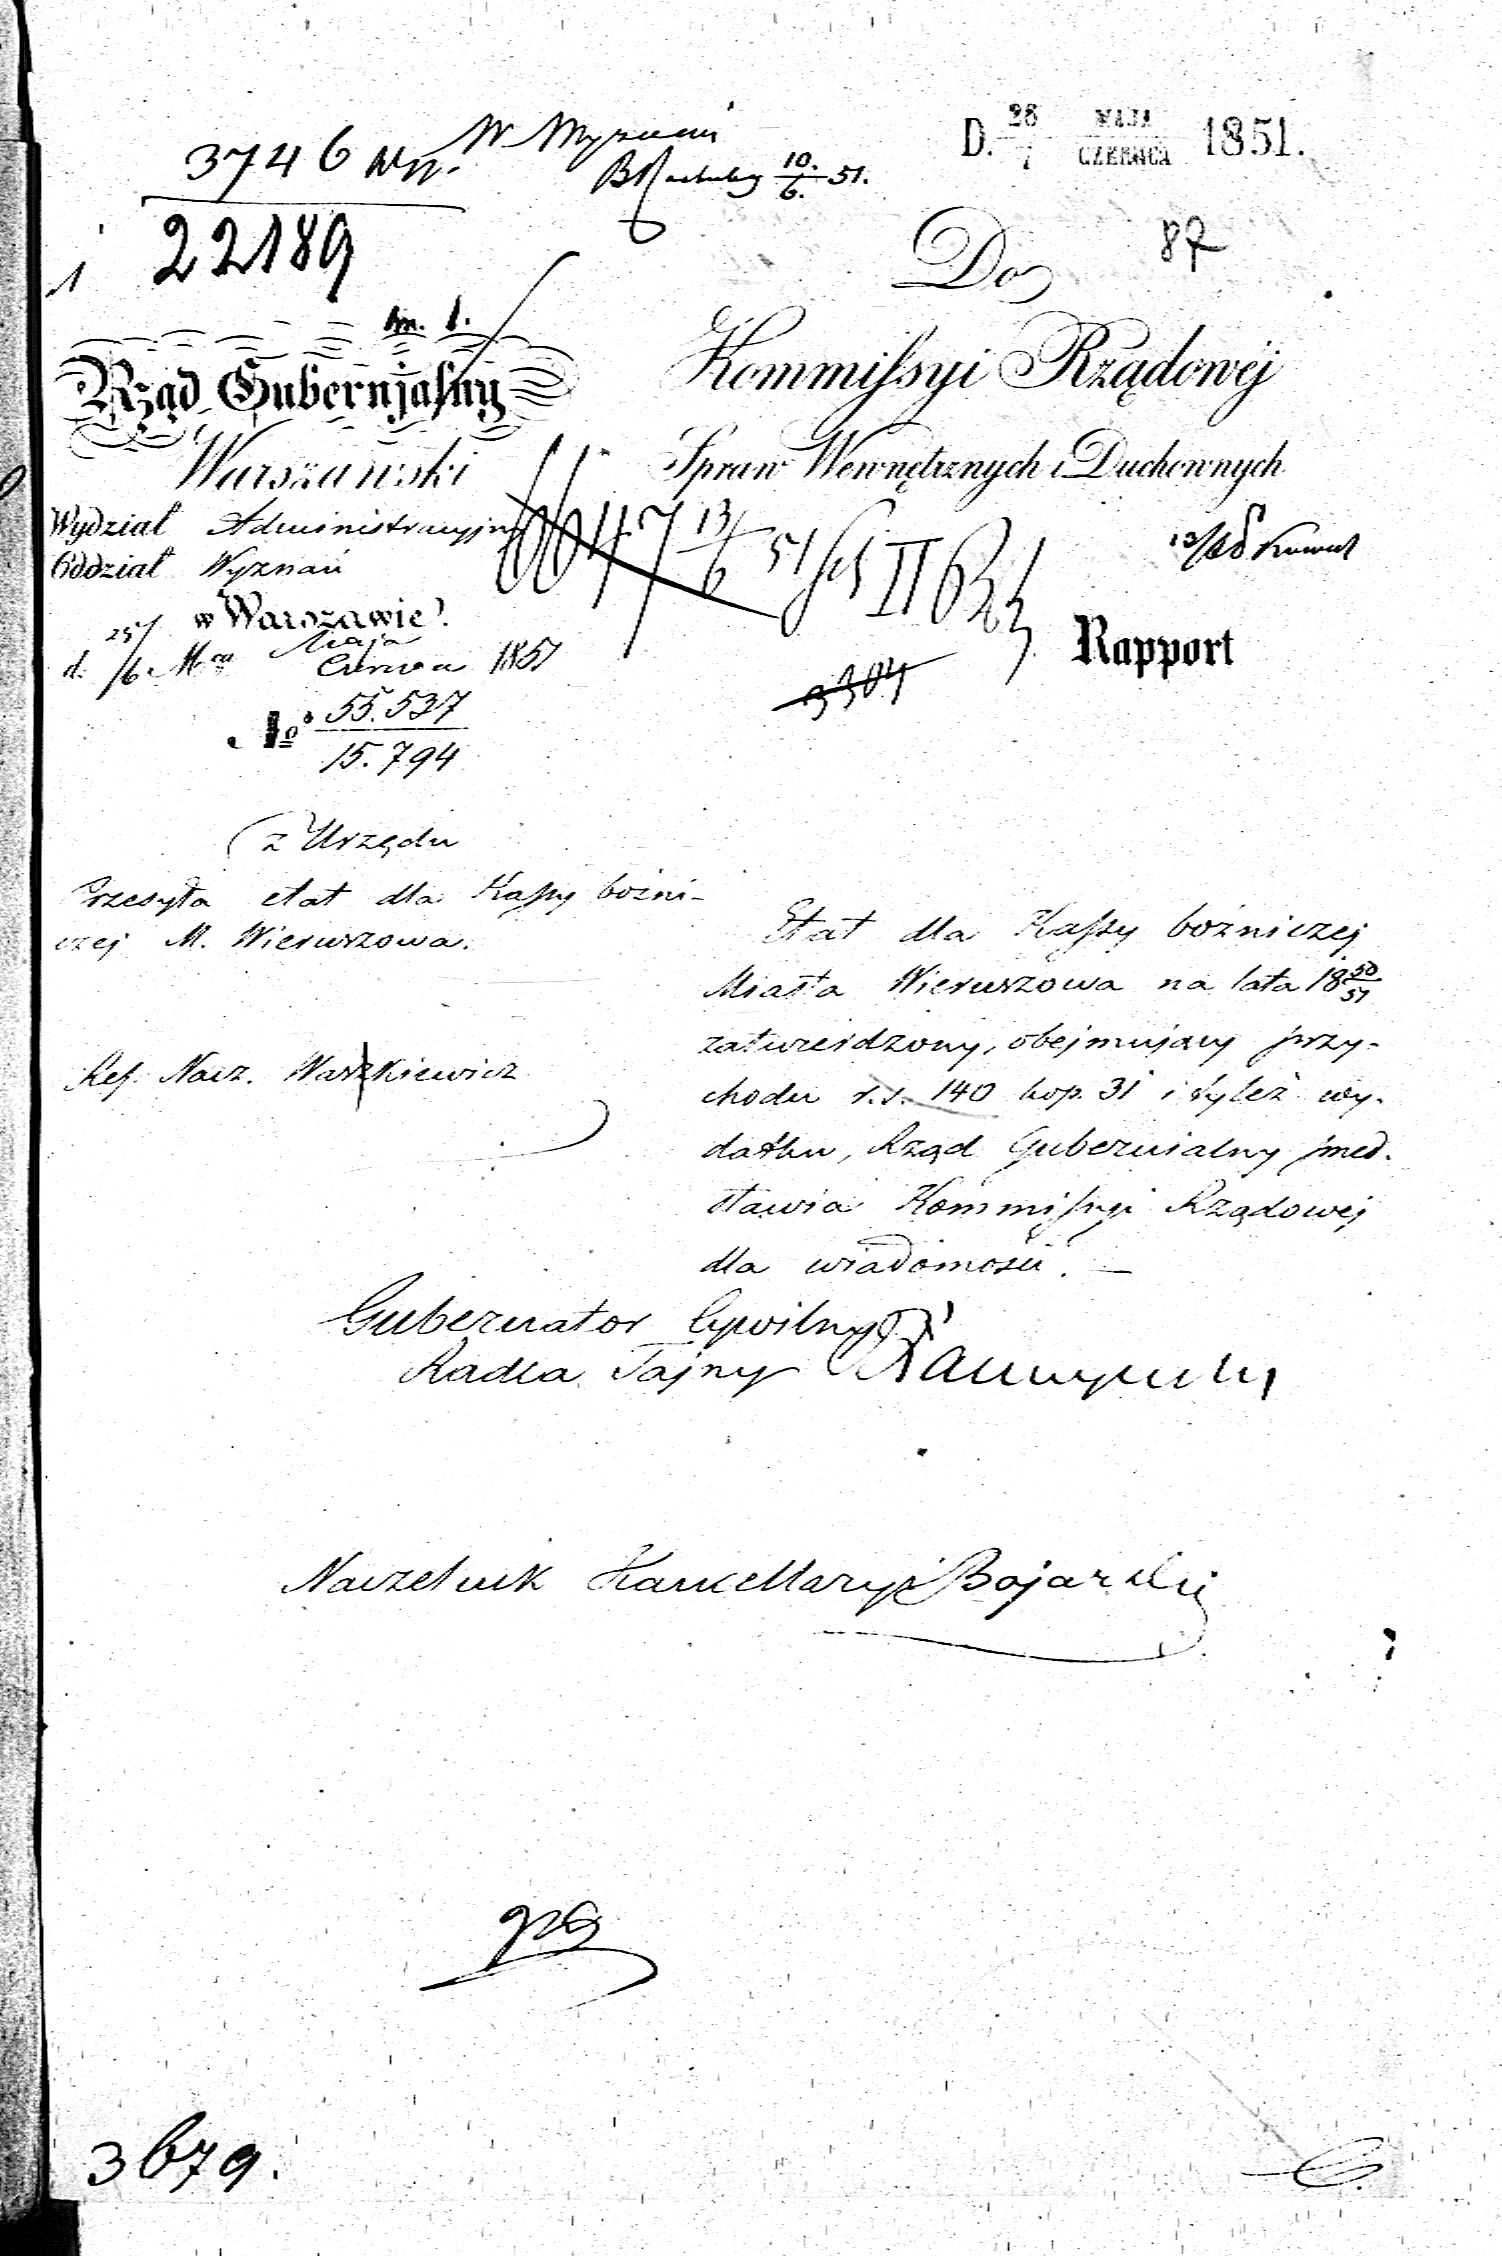 3746
W Wyznań
10./6. 51.
D. 26/7 MAJA/CZERWCA 1851.
22189
1
Do
87
Rząd Gubernjalny
Warszawski
Kommissyi Rządowéj
Spraw Wewnętrznych i Duchownych
Wydział Administracyjny
Oddział Wyznań
w Warszawie
d. 25/6 Maja/Czerwca 1851
13/6 51
Rapport
3304
No 55.537
15.794
z Urzędu
Przesyła etat dla Kassy bożni-
czej M. Wieruszowa.
Ref. Nacz. Warzkiewicz
Etat dla Kassy bożniczej
Miasta Wieruszowa na lata 18 50/51
zatwierdzony, obejmujący przy-
chodu r.s. 140 kop. 31 i tyleż wy-
datku, Rząd Gubernialny przed-
stawia Kommissyi Rządowej
dla wiadomości. —
Gubernator Cywilny
Radca Tajny
Naczelnik Kancellaryi Bojarski
3679.